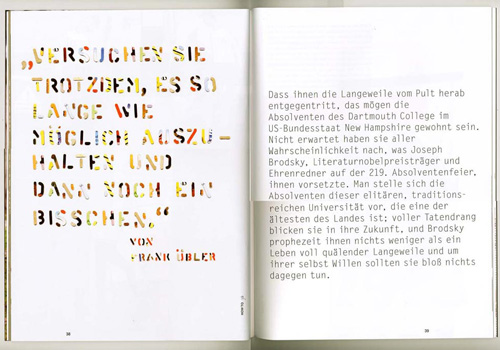 „VERSUCHEN SIE
TROTZDEM, ES SO
LANGE WIE
MÖGLICH AUSZU-
HALTEN UND
DANN NOCH EIN
BISSCHEN.“
VON
FRANK ÜBLER
38
Dass ihnen die Langeweile vom Pult herab
entgegentritt, das mögen die
Absolventen des Dartmouth College im
US-Bundesstaat New Hampshire gewohnt sein.
Nicht erwartet haben sie aller
Wahrscheinlichkeit nach, was Joseph
Brodsky, Literaturnobelpreisträger und
Ehrenredner auf der 219. Absolventenfeier,
ihnen vorsetzte. Man stelle sich die
Absolventen dieser elitären, traditions-
reichen Universität vor, die eine der
ältesten des Landes ist; voller Tatendrang
blicken sie in ihre Zukunft, und Brodsky
prophezeit ihnen nichts weniger als ein
Leben voll quälender Langeweile und um
ihrer selbst Willen sollten sie bloß nichts
dagegen tun.
39